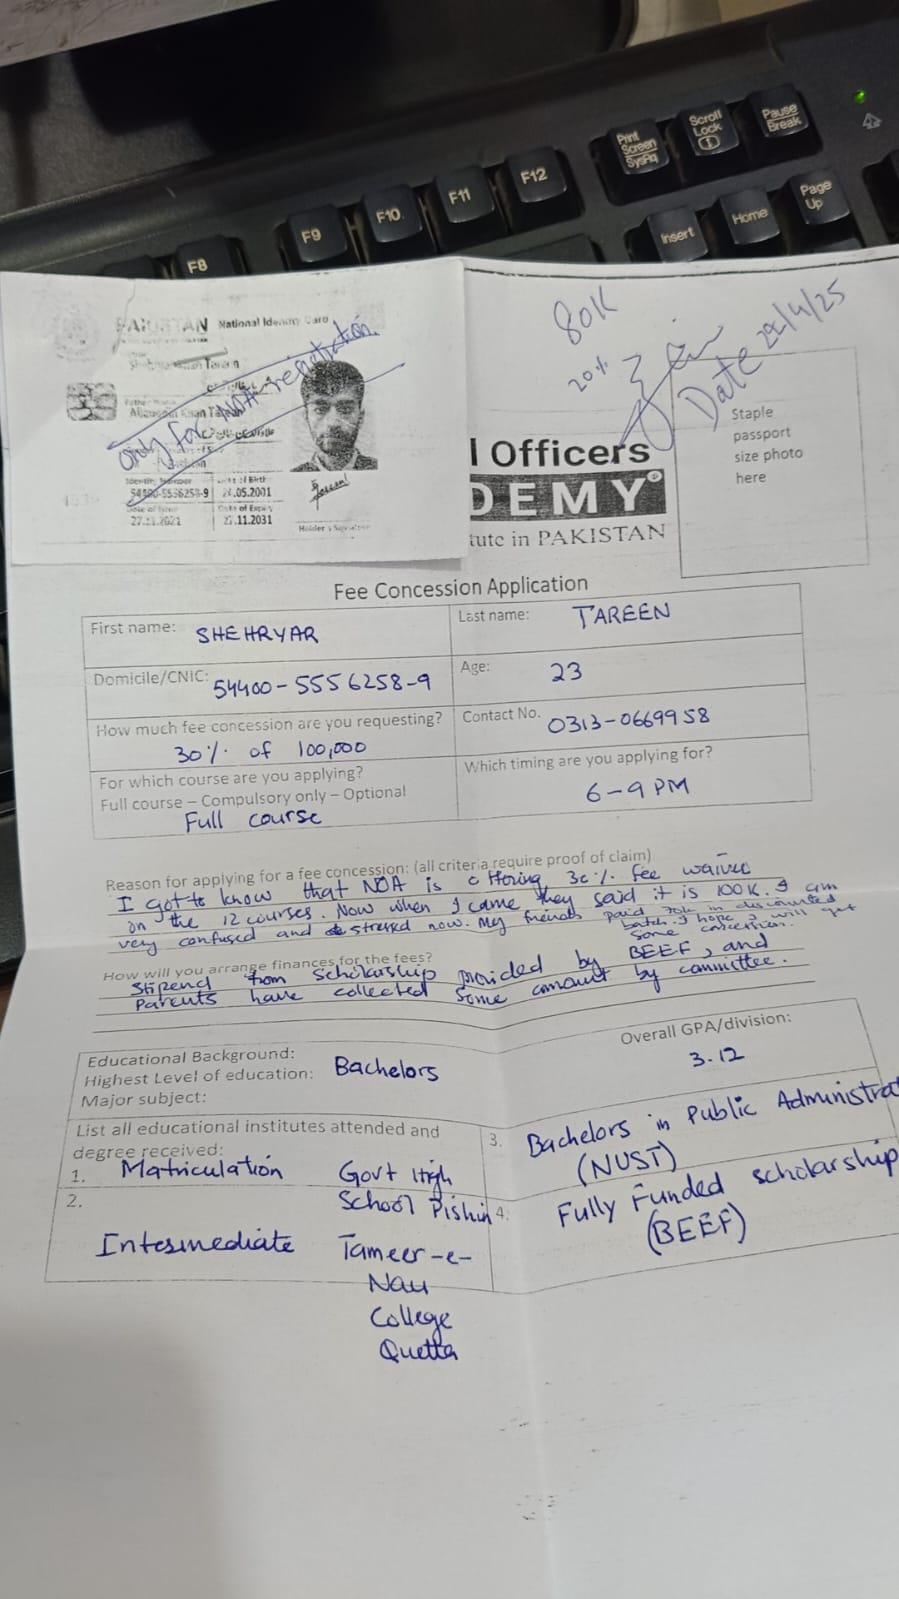 F8
F9
F10
F11
F12
Print
Screen
SysRq
Scroll
Lock
Pause
Break
Insert
Home
Page
Up
PAKISTAN National Identity Card
Tareen
Khan
only for NOA registration
Identity Number
54400-5556258-9
Date of Birth
.05.2001
Date of Issue
27.11.2021
Date of Expiry
27.11.2031
Holder's Signature
80K
20%
Date 22/4/25
l Officers
DEMY®
tute in PAKISTAN
Staple
passport
size photo
here
Fee Concession Application
First name: SHEHRYAR
Last name: TAREEN
Domicile/CNIC: 54400-5556258-9
Age: 23
How much fee concession are you requesting?
30% of 100,000
Contact No. 0313-0669958
For which course are you applying?
Full course – Compulsory only – Optional
Full course
Which timing are you applying for?
6-9 PM
Reason for applying for a fee concession: (all criteria require proof of claim)
I got to know that NOA is offering 30% fee waive
on the 12 courses. Now when I came they said it is 100K. I am
very confused and stressed now. My friends paid 70k in discounted
batch. I hope I will get
some concession.
How will you arrange finances for the fees?
Stipend from scholarship provided by BEEF, and
Parents have collected some amount by committee.
Educational Background:
Highest Level of education: Bachelors
Major subject:
Overall GPA/division:
3.12
List all educational institutes attended and
degree received:
1. Matriculation Govt High
School Pishin
2. Intermediate Tameer-e-
Nau
College
Quetta
3. Bachelors in Public Administrat
(NUST)
4. Fully Funded scholarship
(BEEF)